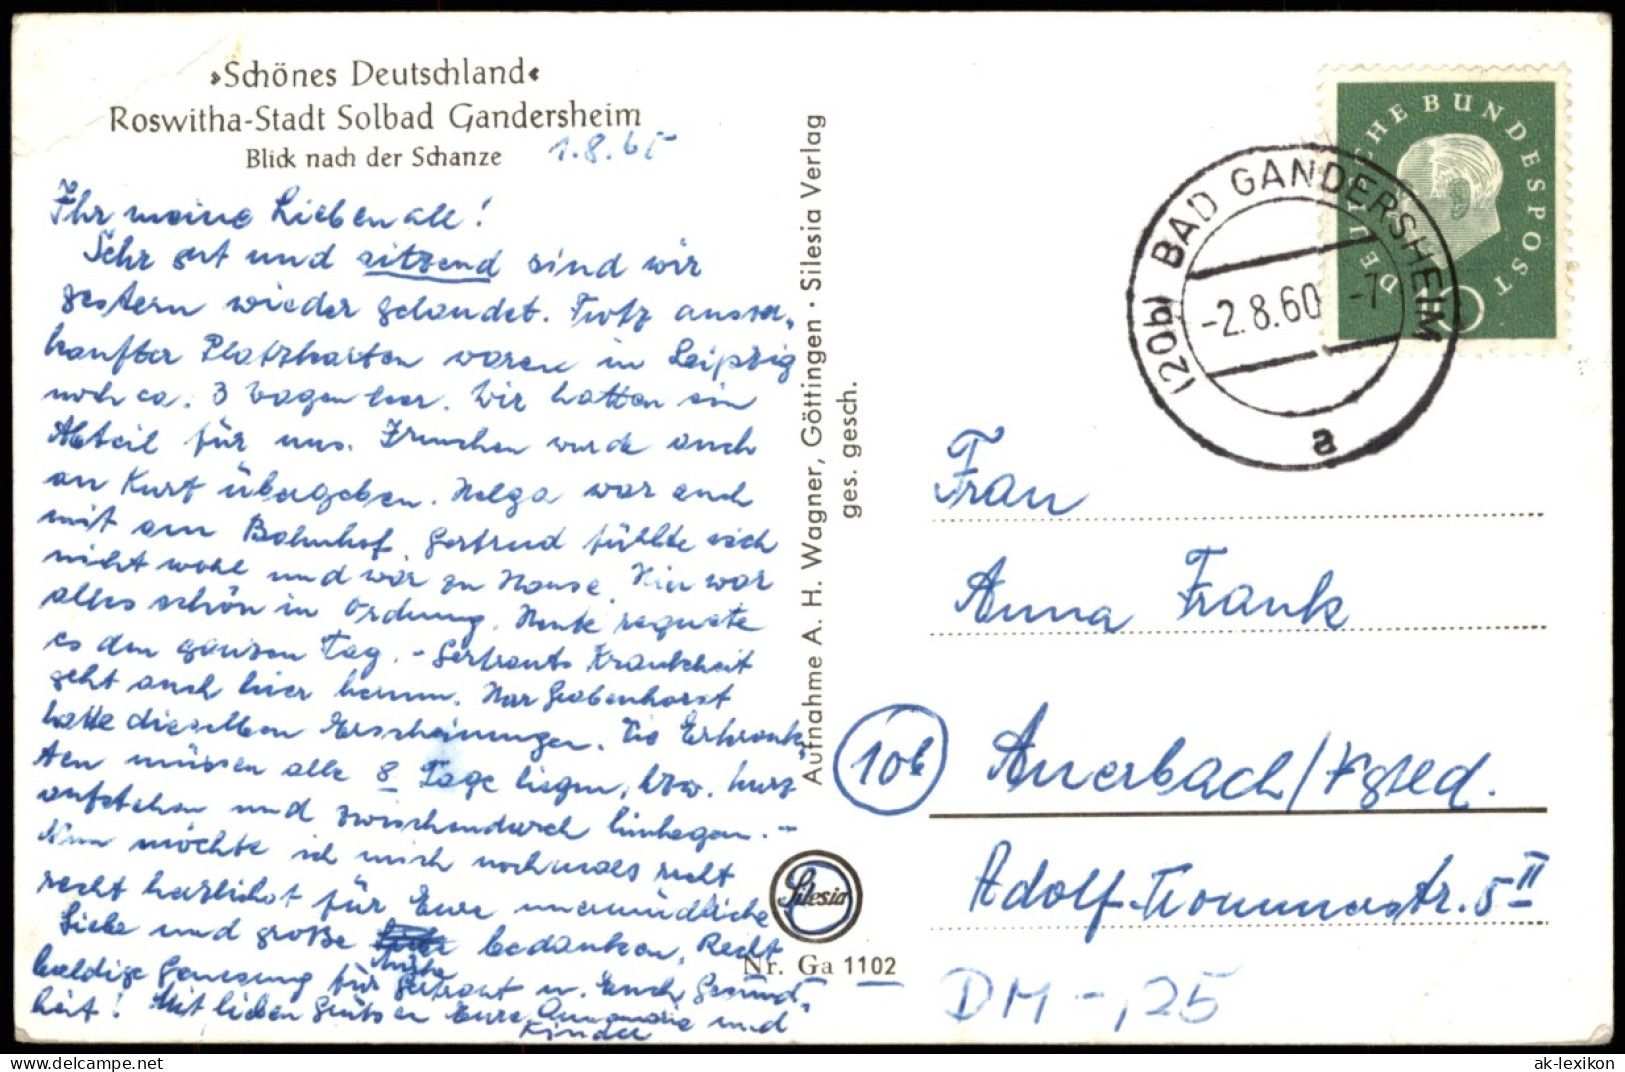 »Schönes Deutschland«
Roswitha-Stadt Solbad Gandersheim
Blick nach der Schanze
1.8.60
Ihr meine Lieben all!
Sehr gut und sitzend sind wir
gestern wieder gelandet. Trotz ausver-
kaufter Platzkarten waren in Leipzig
noch ca. 3 Wagen leer. Wir hatten ein
Abteil für uns. wurde auch
an Kurt übergeben. Helga war auch
mit am Bahnhof. Gertrud fühlte sich
nicht wohl und war zu Hause. Hier war
alles schön in Ordnung. Heute regnete
es den ganzen Tag. - Gertrauts Krankheit
geht auch hier herum. Grabenhorst
hatte dieselben Erscheinungen. Die Erkrank-
ten müssen alle 8 Tage liegen, bzw. kurz
aufstehen und zwischendurch hinlegen. -
Nun möchte ich mich nochmals recht
recht herzlichst für Eure unermüdliche
Liebe und große Mühe bedanken. Recht
baldige Genesung für Gertraut u. Euch Gesund-
heit! Mit lieben Grüßen Eure Annemarie und
Kinder
Aufnahme A. H. Wagner, Göttingen · Silesia Verlag
ges. gesch.
Silesia
Nr. Ga 1102
DEUTSCHE BUNDESPOST
(20b) BAD GANDERSHEIM
-2.8.60 -7
a
Frau
Anna Frank
(10b) Auerbach/Vgtld.
Adolf-Trommerstr. 5 II
DM -,25
ak-lexikon